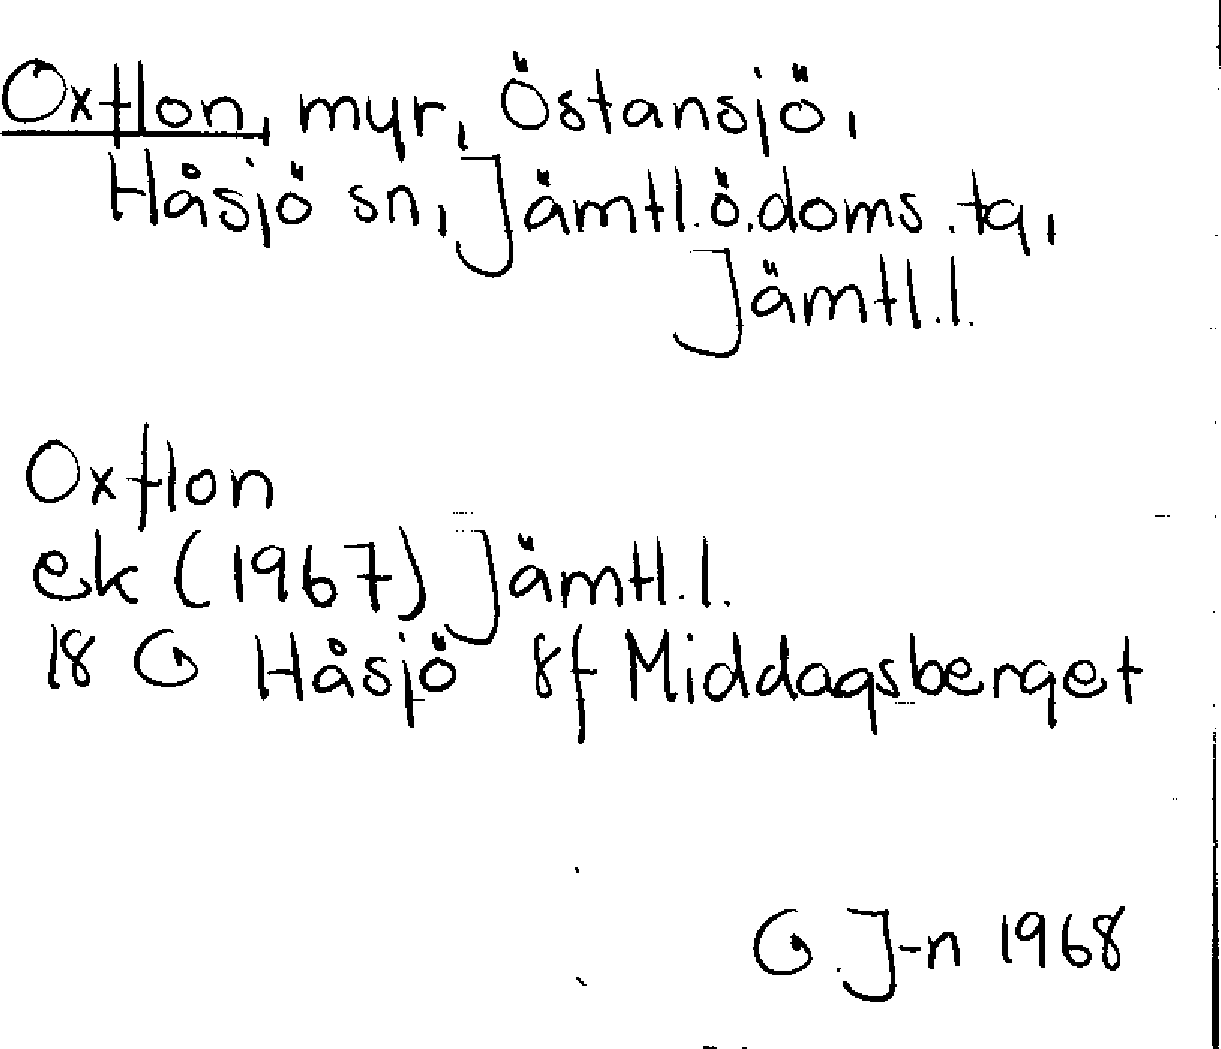 Oxflon, myr, Östansjö,
Håsjö sn, Jämtl.ö.doms.tg,
Jämtl.l.
Oxflon
ek (1967) Jämtl.l.
18 G Håsjö 8f Middagsberget
G.J-n 1968